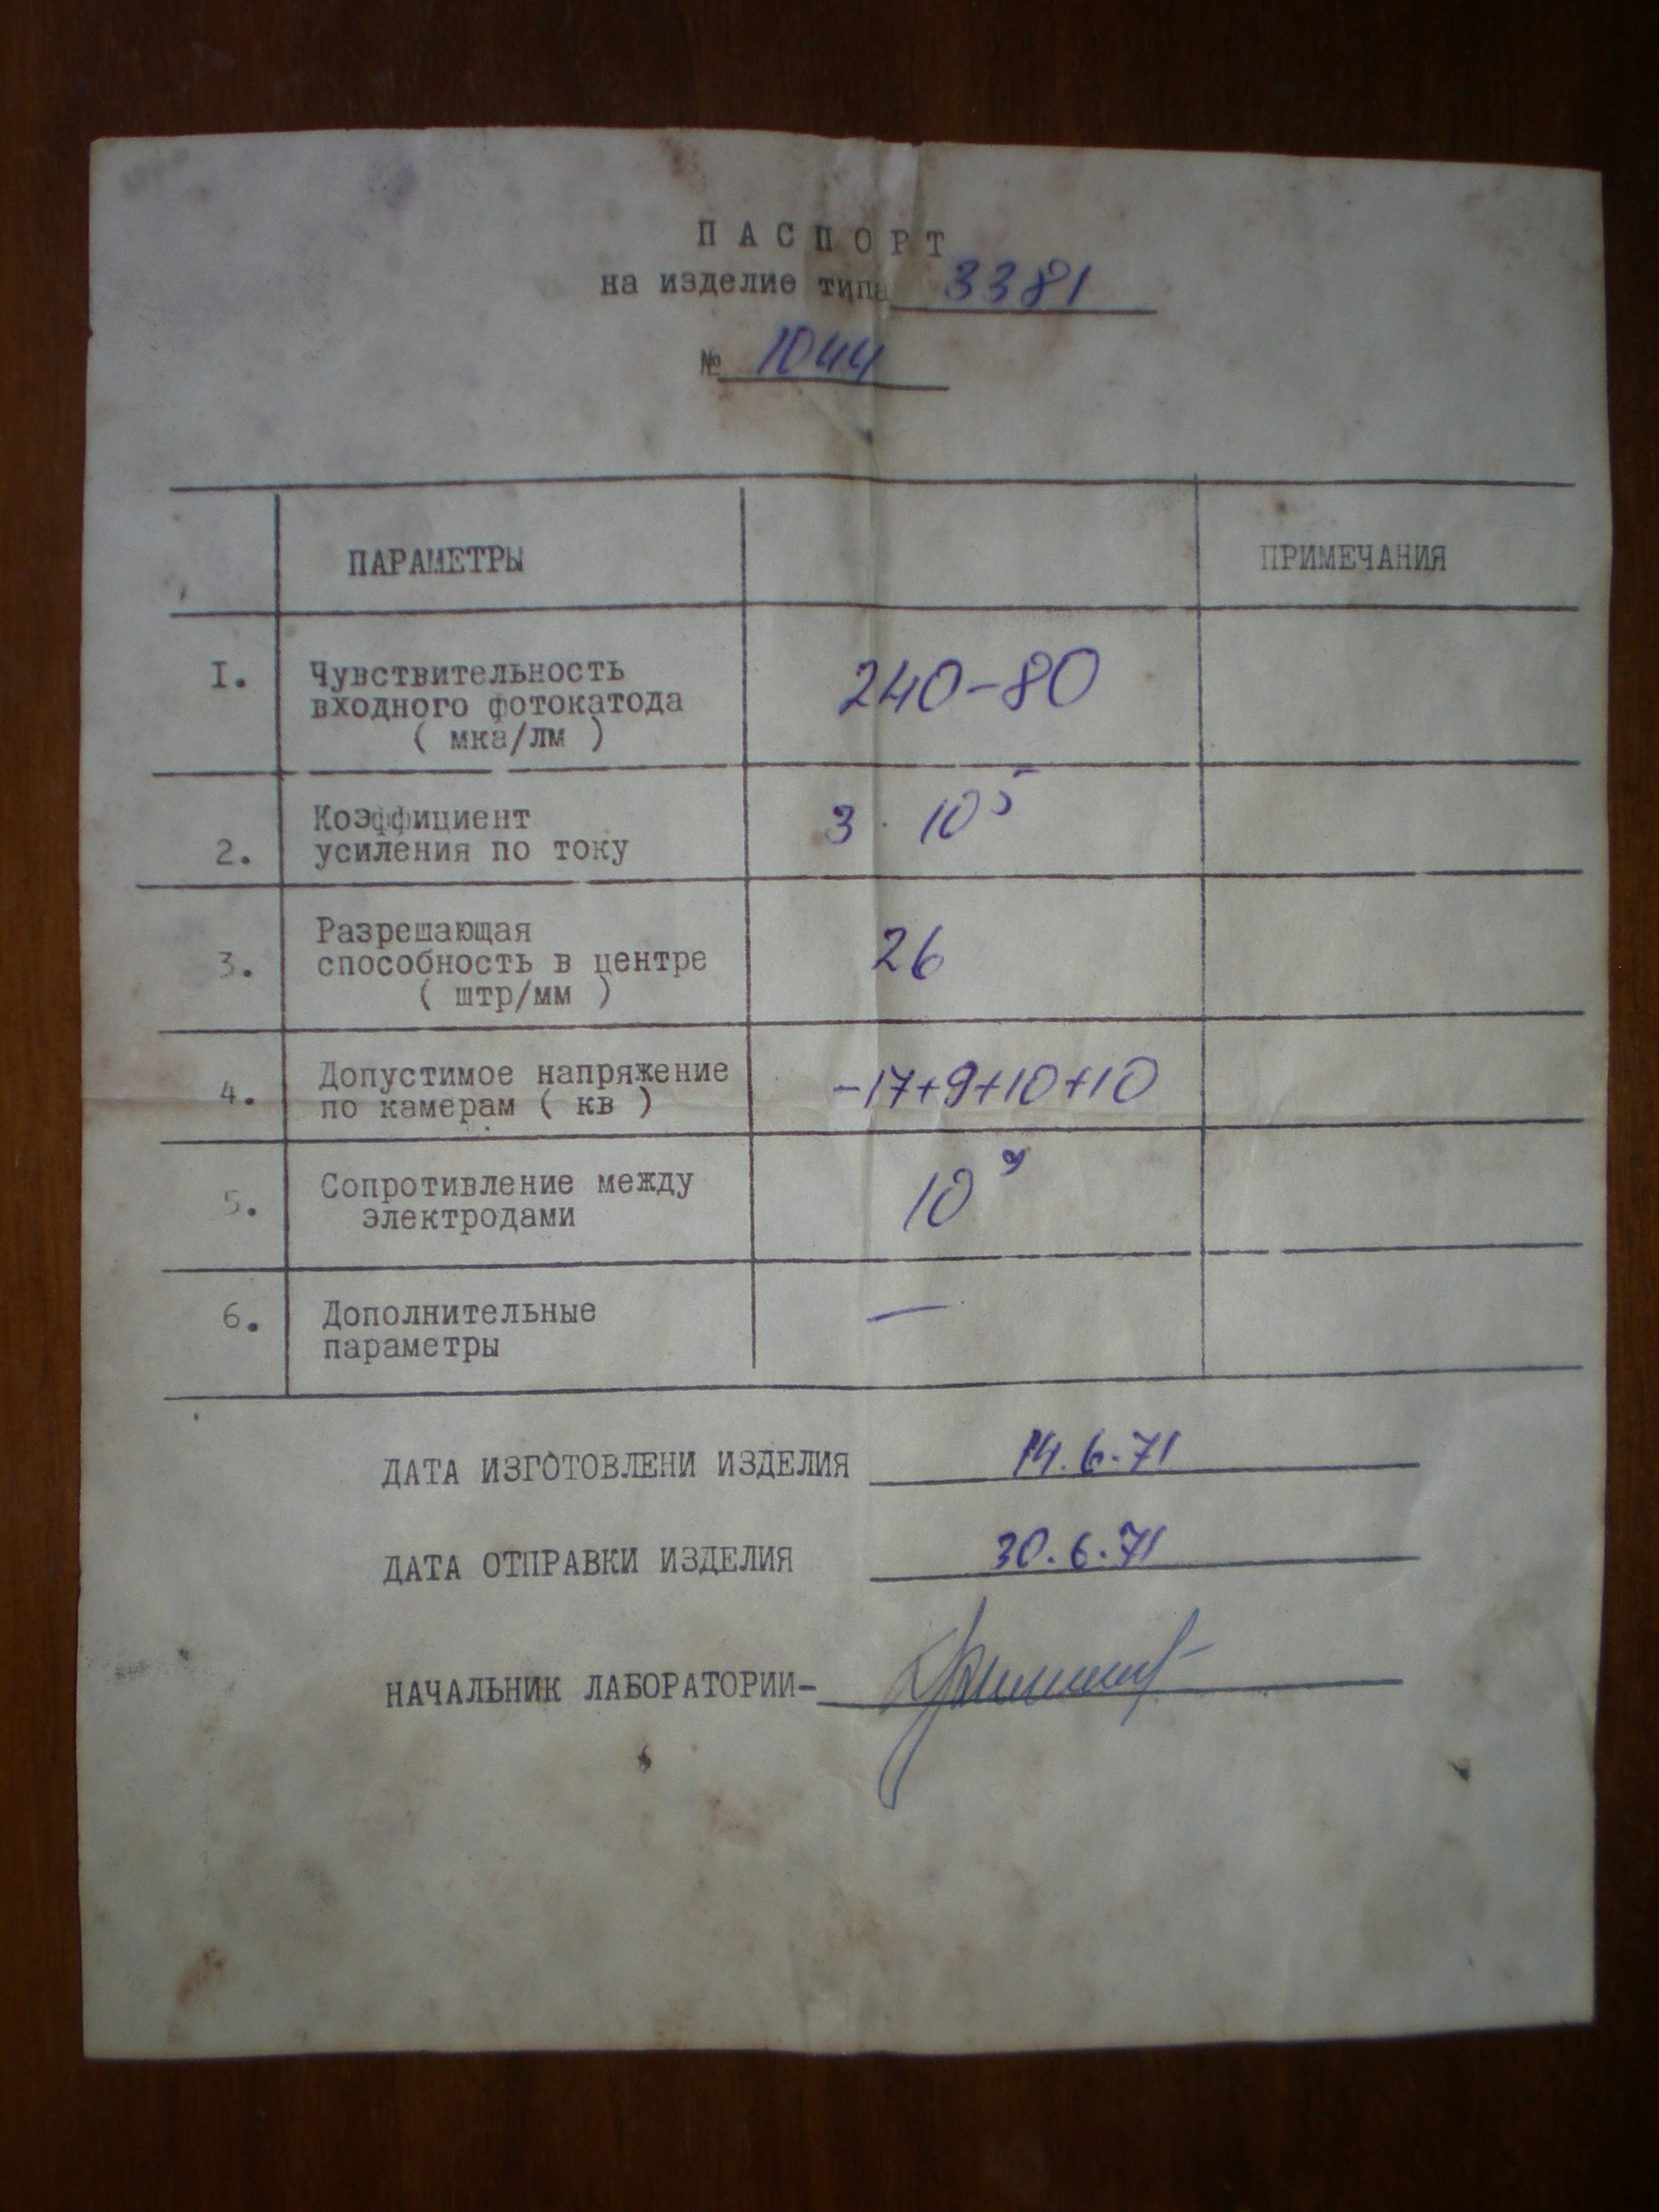 ПАСПОРТ
на изделие типа 3381
№ 1044
ПАРАМЕТРЫ ПРИМЕЧАНИЯ
I. Чувствительность
входного фотокатода
( мка/лм )
240-80
2. Коэффициент
усиления по току
3 · 10⁵
3. Разрешающая
способность в центре
( штр/мм )
26
4. Допустимое напряжение
по камерам ( кв )
-17+9+10+10
5. Сопротивление между
электродами
10⁹
6. Дополнительные
параметры
—
ДАТА ИЗГОТОВЛЕНИ ИЗДЕЛИЯ 14.6.71
ДАТА ОТПРАВКИ ИЗДЕЛИЯ 30.6.71
НАЧАЛЬНИК ЛАБОРАТОРИИ-